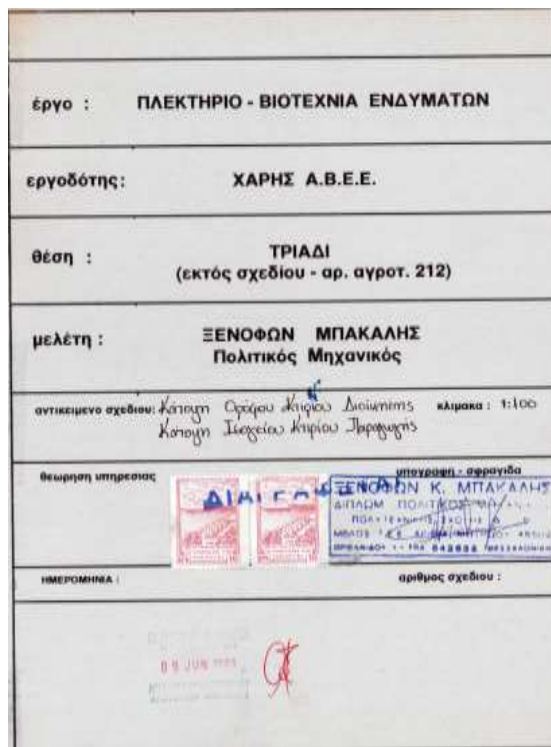 έργο : ΠΛΕΚΤΗΡΙΟ - ΒΙΟΤΕΧΝΙΑ ΕΝΔΥΜΑΤΩΝ
εργοδότης: ΧΑΡΗΣ Α.Β.Ε.Ε.
θέση : ΤΡΙΑΔΙ
(εκτός σχεδίου - αρ. αγροτ. 212)
μελέτη : ΞΕΝΟΦΩΝ ΜΠΑΚΑΛΗΣ
Πολιτικός Μηχανικός
αντικείμενο σχεδίου: Κάτοψη Ορόφου Κτιρίου Διοίκησης κλιμακα : 1:100
Κάτοψη Ισογείου Κτιρίου Παραγωγής
θεωρηση υπηρεσιας
υπογραφη - σφραγιδα
ΞΕΝΟΦΩΝ Κ. ΜΠΑΚΑΛΗΣ
ΔΙΠΛΩΜ ΠΟΛΙΤΙΚΟΣ
ΗΜΕΡΟΜΗΝΙΑ :
αριθμος σχεδιου :
09 JUN